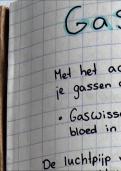 Gas
Met het a
je gassen
• Gaswiss
bloed in
De luchtpijp